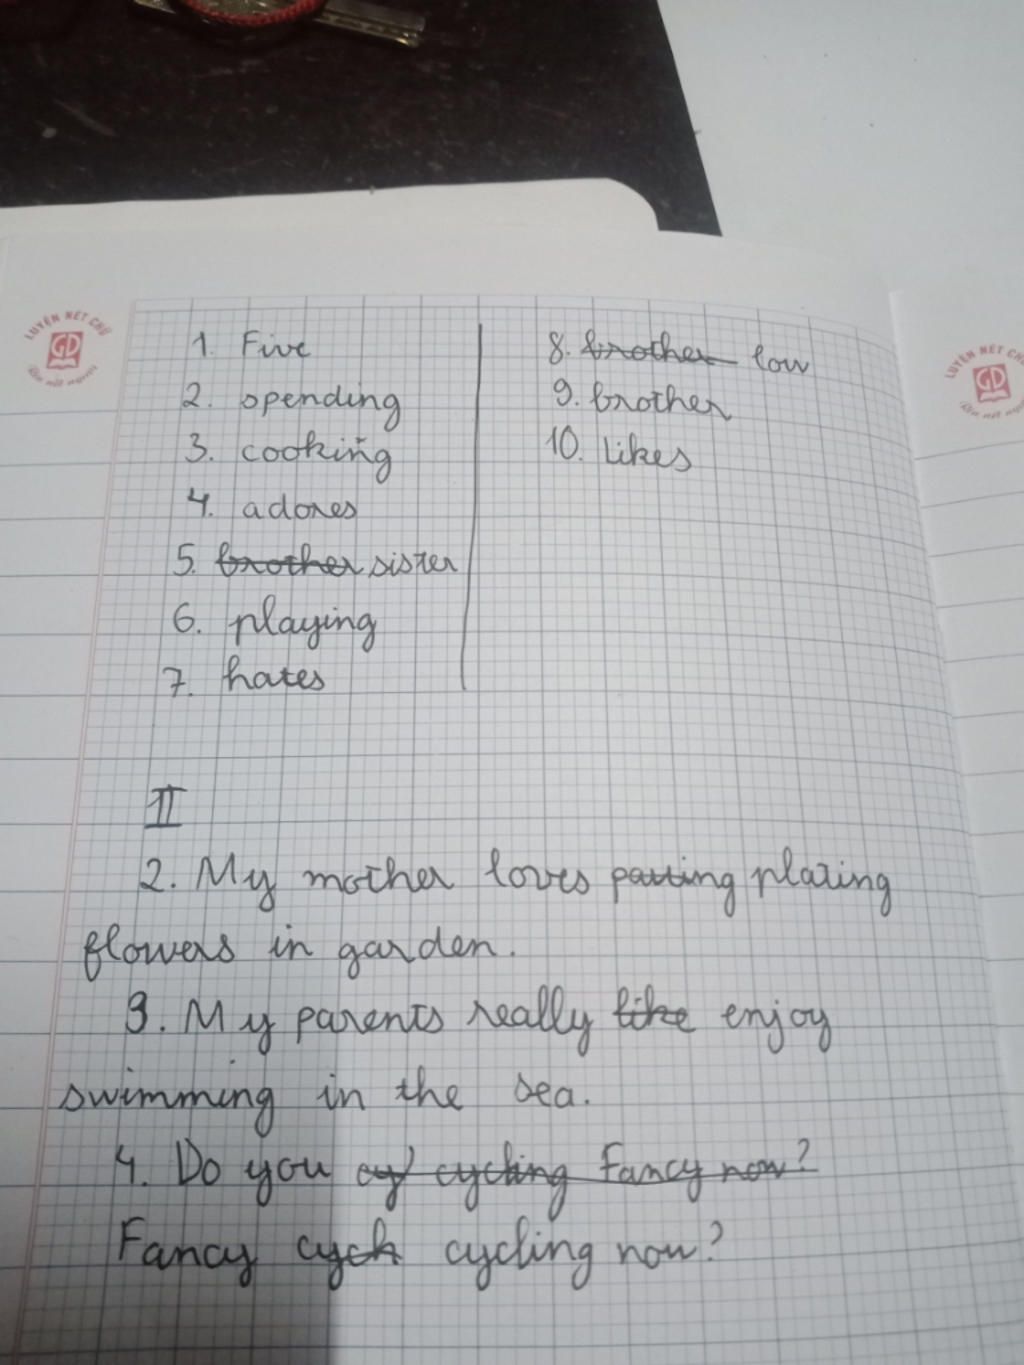 LUYỆN NÉT CHỮ
GD
Rèn nết người
1. Five
2. spending
3. cooking
4. adores
5. brother sister
6. playing
7. hates
8. brother low
9. brother
10. Likes
II
2. My mother loves patting plating
flowers in garden.
3. My parents really like enjoy
swimming in the sea.
4. Do you cy cycling Fancy now?
Fancy cych cycling now?
LUYỆN NÉT CHỮ
GD
Rèn nết người